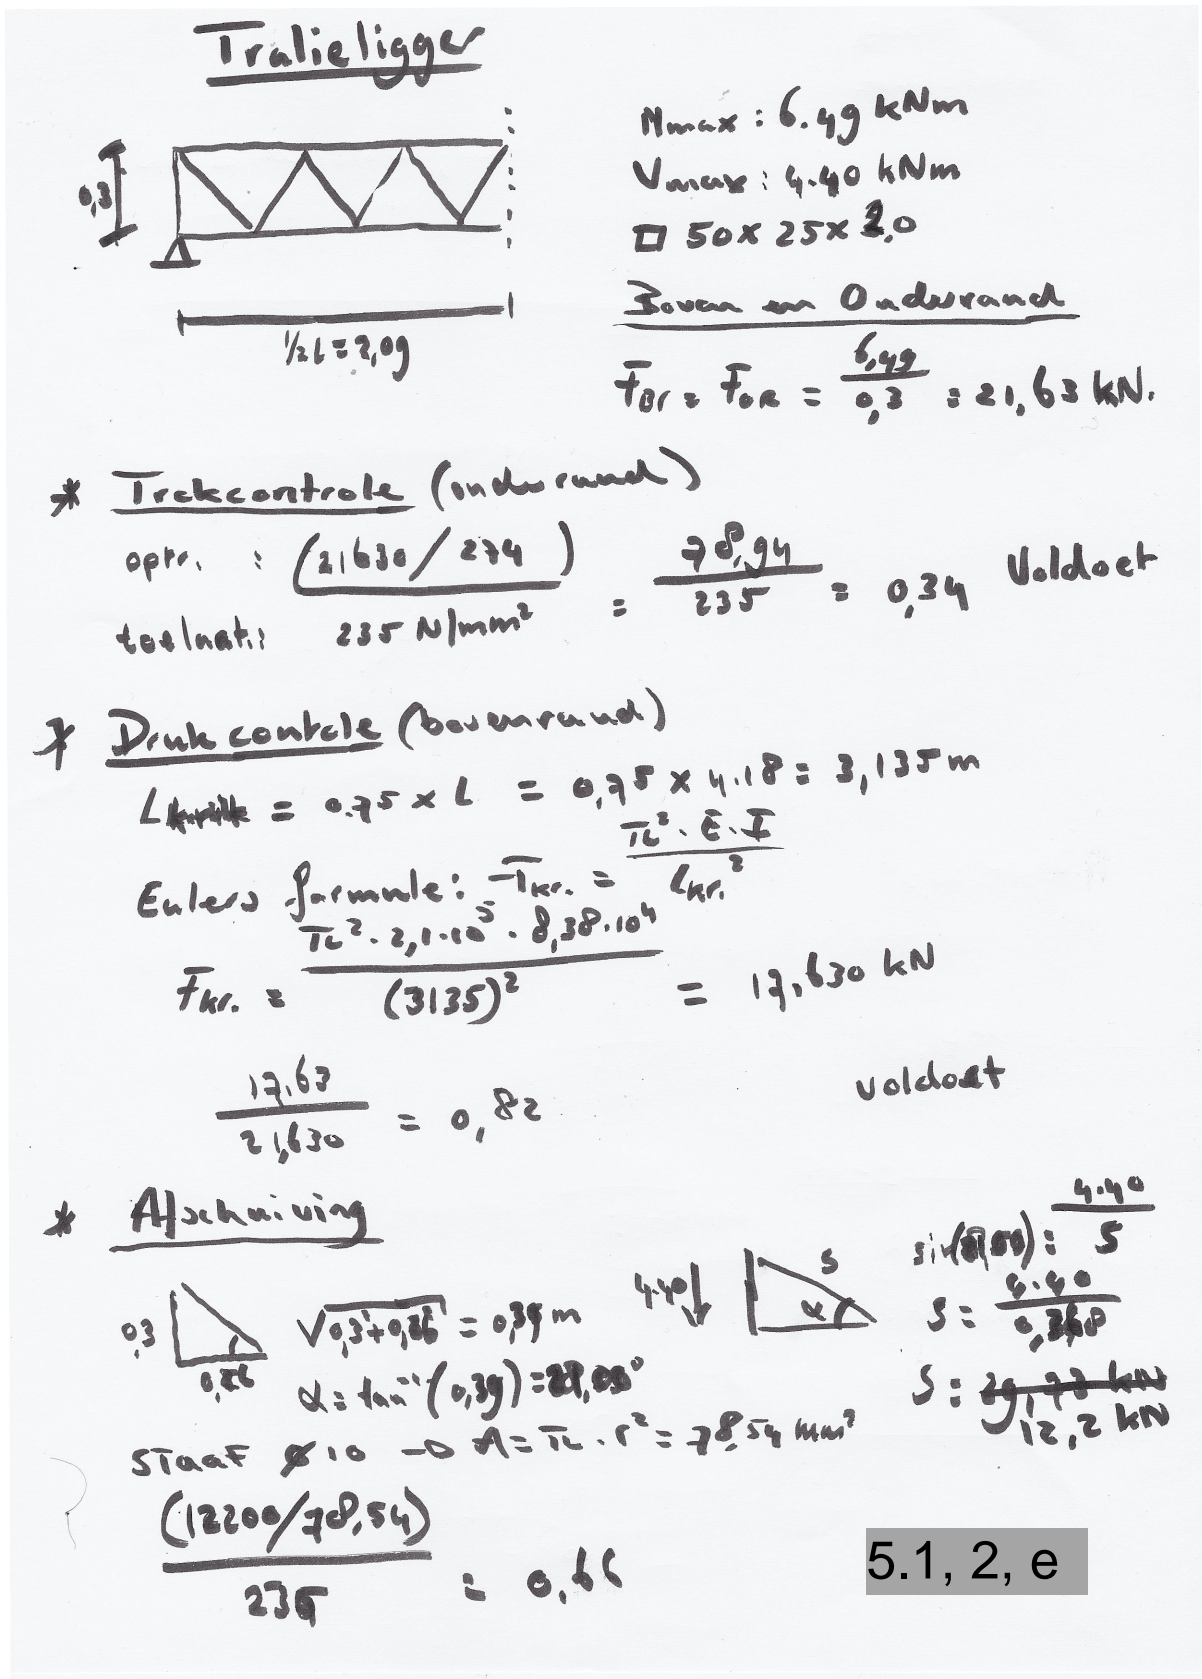 Tralieligger
0,3
½L = 2,09
Mmax : 6.49 kNm
Vmax : 4.40 kNm
□ 50 x 25 x 2,0
Boven en Onderrand
FBR = FOR = 6,49 / 0,3 = 21,63 kN.
* Trekcontrole (onderrand)
optr. : (21630 / 274) = 78,94 / 235 = 0,34 Voldoet
toelaat.: 235 N/mm²
* Druk contole (bovenrand)
L = 0.75 x L = 0,75 x 4.18 = 3,135 m
Eulers formule: Fkr. = π² . E . I / Lkr.²
Fkr. = π² . 2,1.10⁵ . 8,38.10⁴ / (3135)² = 17,630 kN
17,63 / 21,630 = 0,82 voldoet
* Afschuiving
0.3
√0,3²+0,26² = 0,39 m
α = tan⁻¹ (0,39) =
4.40
S
α
4.40 / S
S = 4.40 / 0,368
S = 29,73 kN
12,2 kN
STAAF ø 10 → A = π . r² = 78,54 mm²
(12200/78,54) / 235 = 0,66
5.1, 2, e